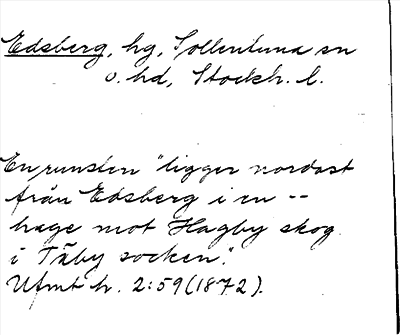 Edsberg, hg, Sollentuna sn
o. hd, Stockh. l.
En runsten "ligger nordost
från Edsberg i en --
hage mot Hagby skog
i Täby socken".
Ufmt h. 2:59 (1872).